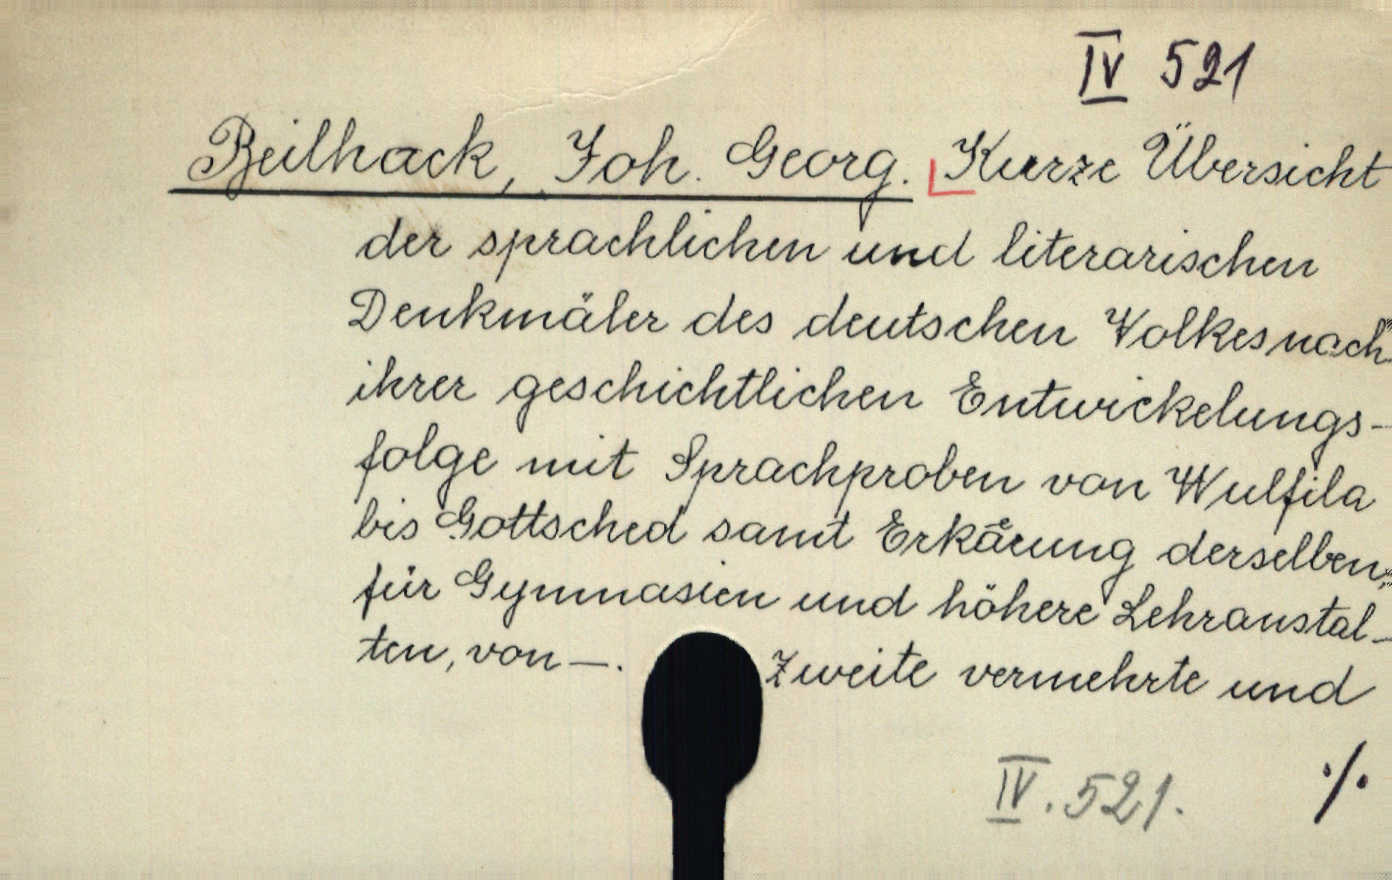 IV 521
Beilhack, Joh. Georg. Kurze Übersicht
der sprachlichen und literarischen
Denkmäler des deutschen Volkes nach
ihrer geschichtlichen Entwickelungs-
folge mit Sprachproben von Wulfila
bis Gottsched samt Erkärung derselben,
für Gymnasien und höhere Lehranstal-
ten, von —. Zweite vermehrte und
IV. 521. ./.